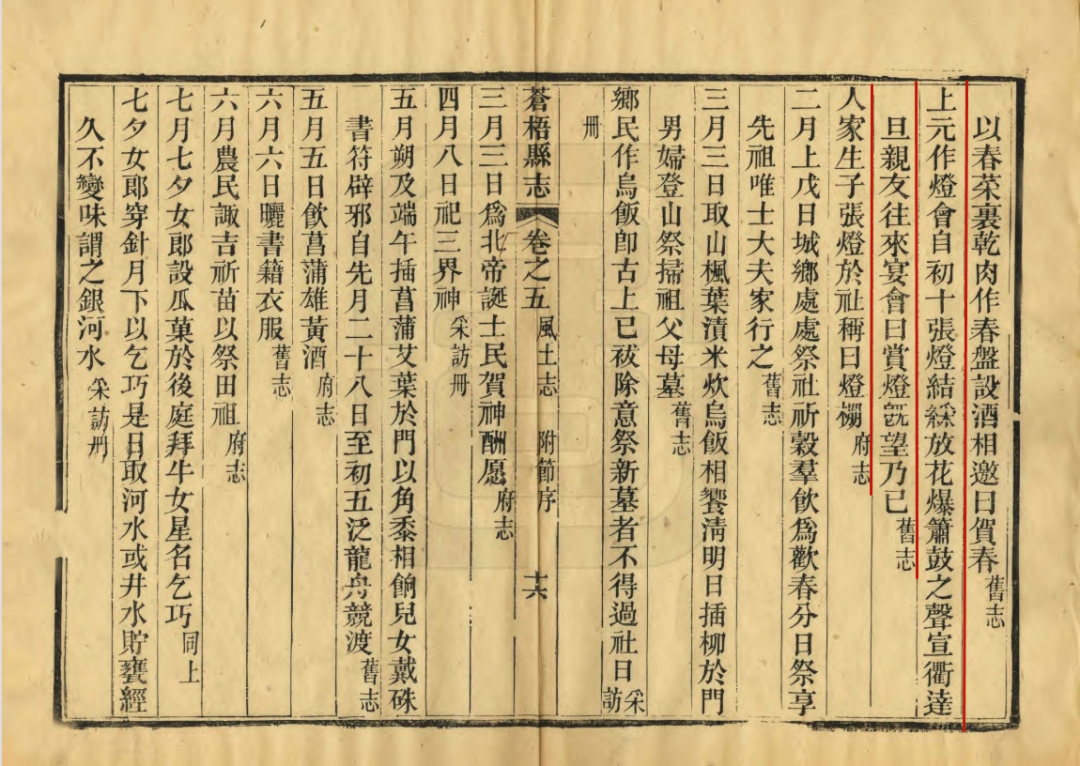 以春菜裏乾肉作春盤設酒相邀曰賀春舊志
上元作燈會自初十張燈結綵放花爆簫鼓之聲宣衢達
旦親友往來宴會曰賞燈旣望乃已舊志
人家生子張燈於社稱曰燈棚府志
二月上戊日城鄉處處祭社祈穀羣飮爲歡春分日祭享
先祖唯士大夫家行之舊志
三月三日取山楓葉漬米炊烏飯相饗淸明日插柳於門
男婦登山祭掃祖父母墓舊志
鄉民作烏飯卽古上巳祓除意祭新墓者不得過社日采訪
冊
蒼梧縣志 卷之五 風土志 附節序 十六
三月三日爲北帝誕士民賀神酬愿府志
四月八日祀三界神采訪冊
五月朔及端午插菖蒲艾葉於門以角黍相餉兒女戴硃
書符辟邪自先月二十八日至初五泛龍舟競渡舊志
五月五日飮菖蒲雄黃酒府志
六月六日曬書籍衣服舊志
六月農民諏吉祈苗以祭田祖府志
七月七夕女郎設瓜菓於後庭拜牛女星名乞巧同上
七夕女郎穿針月下以乞巧是日取河水或井水貯甕經
久不變味謂之銀河水采訪冊